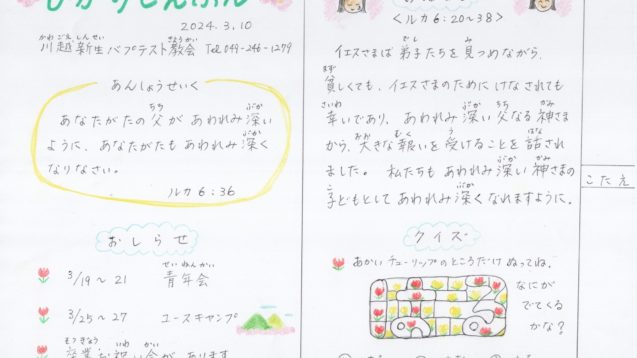 ひかりしんぶん
2024.3.10
かわごえしんせい きょうかい
川越新生バプテスト教会 Tel 049-246-1279
あんしょうせいく
ちち ぶか
あなたがたの父があわれみ深い
ぶか
ように、あなたがたもあわれみ深く
なりなさい。
ルカ6:36
おしらせ
せいねんかい
3/19~21 青年会
3/25~27 ユースキャンプ
そつぎょう いわ かい
卒業お祝い会があります
<ルカ6:20~38>
でし み
イエスさまは弟子たちを見つめながら、
まず
貧しくても、イエスさまのためにけなされても
さいわ ぶか ちち かみ
幸いであり、あわれみ深い父なる神さま
むく う はな
から、大きな報いを受けることを話され
ぶか かみ
ました。私たちもあわれみ深い神さまの
こ ぶか
子どもとしてあわれみ深くなれますように。
クイズ
あかいチューリップのところだけぬってね。
なにが
でてくる
かな?
こたえ